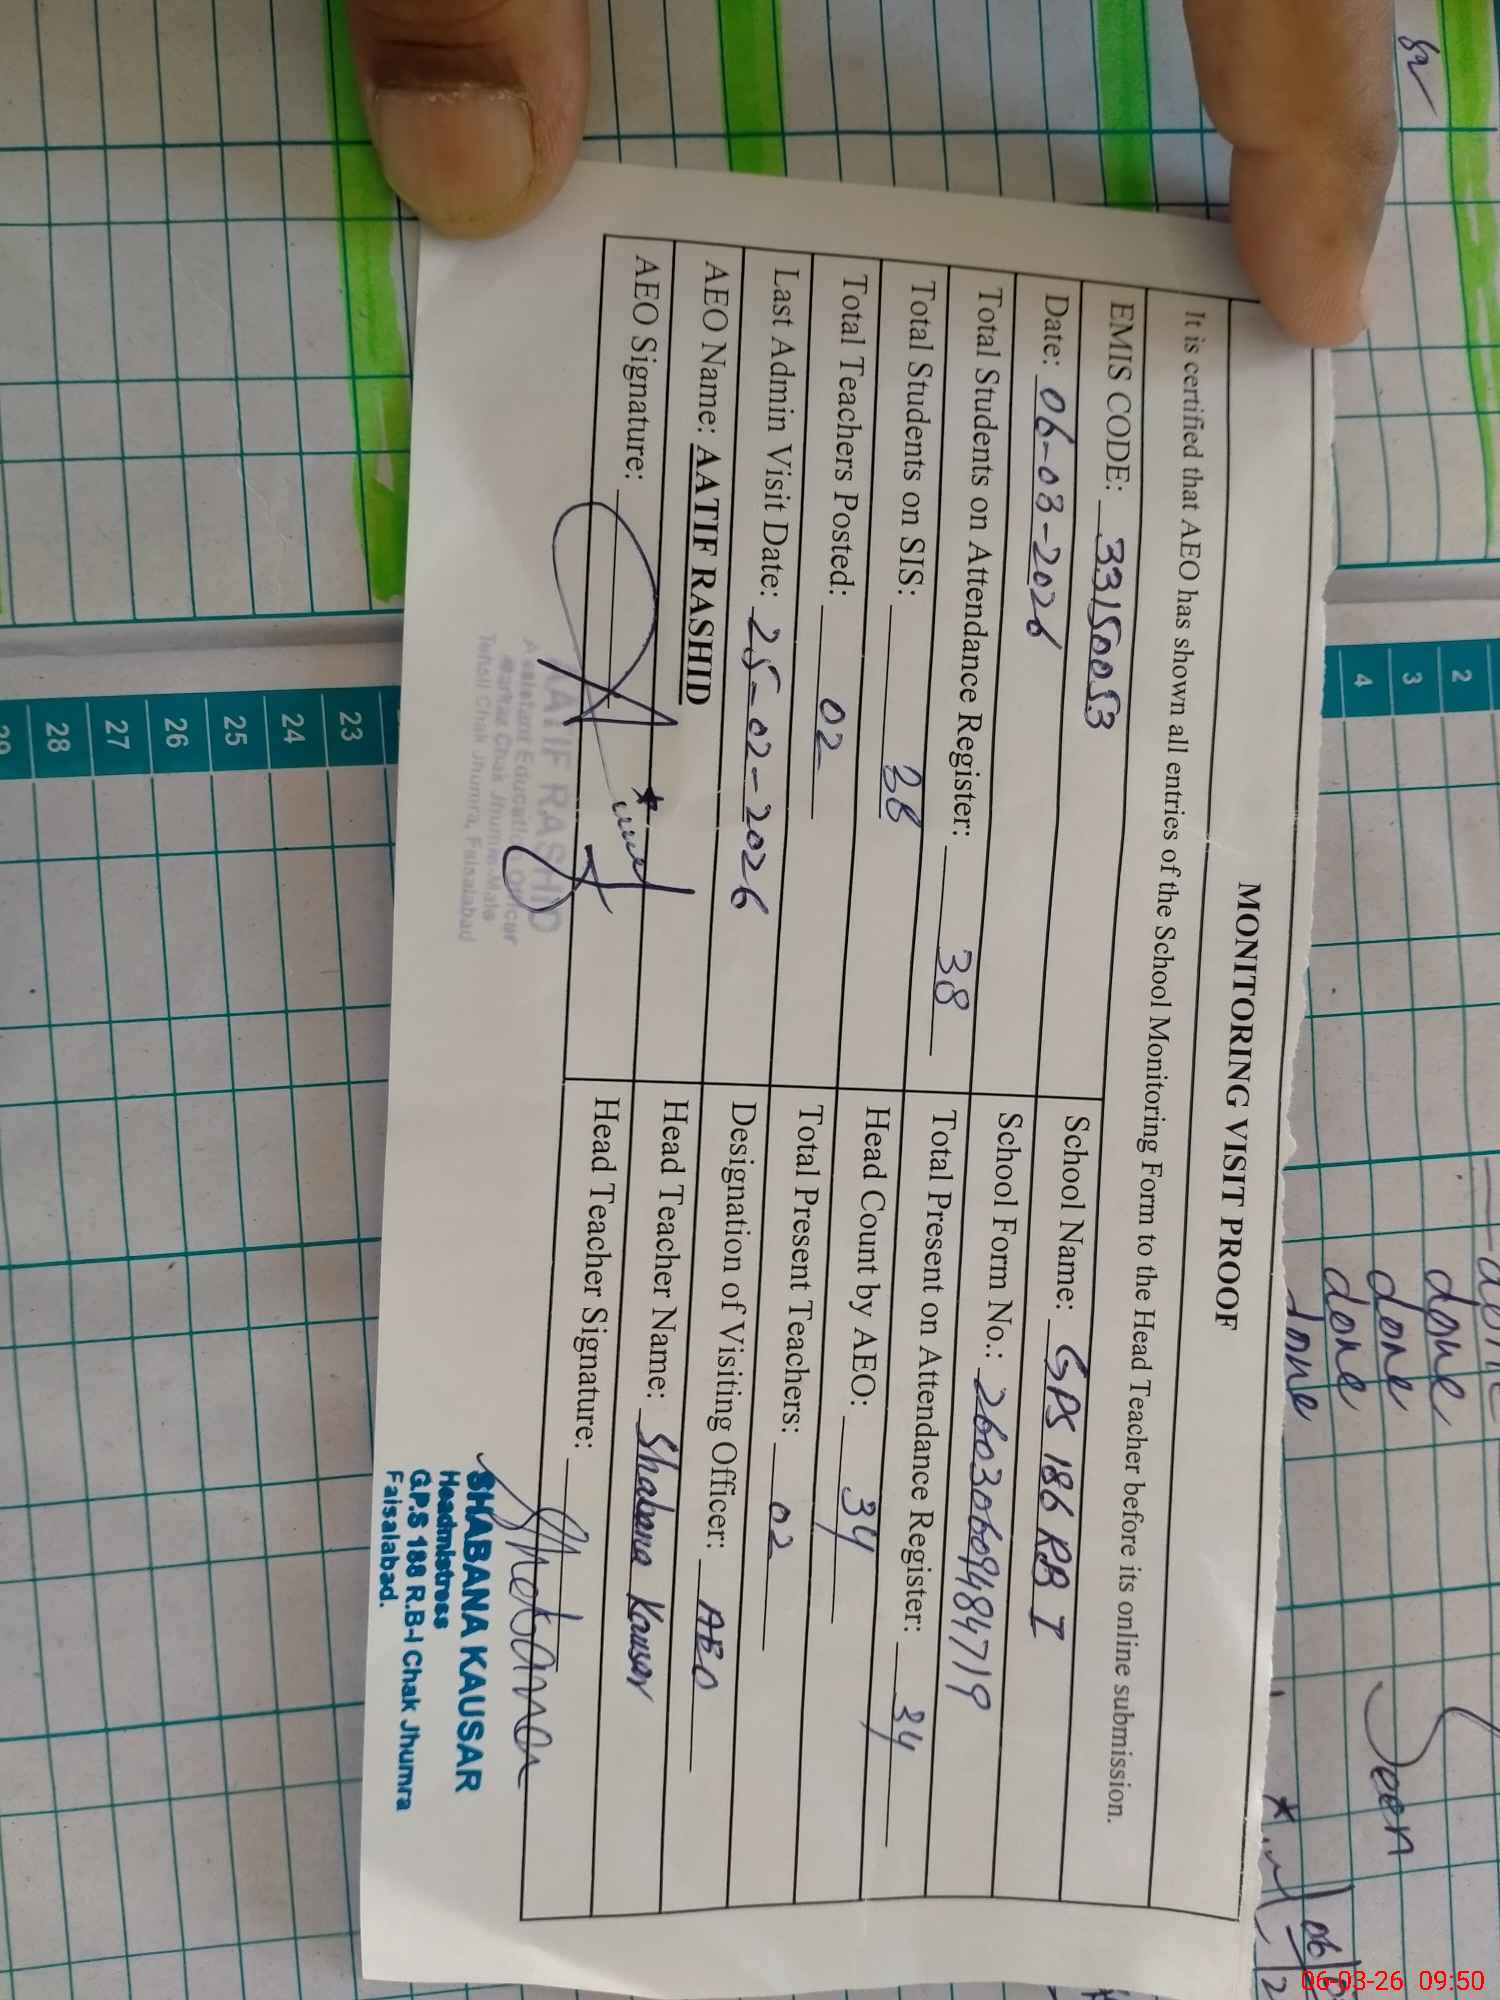 MONITORING VISIT PROOF
It is certified that AEO has shown all entries of the School Monitoring Form to the Head Teacher before its online submission.
EMIS CODE: 33150053
School Name: GPS 186 RB I
Date: 06-03-2026
School Form No.: 26030609484719
Total Students on Attendance Register: 38
Total Present on Attendance Register: 34
Total Students on SIS: 38
Head Count by AEO: 34
Total Teachers Posted: 02
Total Present Teachers: 02
Last Admin Visit Date: 25-02-2026
Designation of Visiting Officer: AEO
AEO Name: AATIF RASHID
Head Teacher Name: Shabana Kausar
AEO Signature:
Head Teacher Signature: Shabana
AATIF RASHID
Assistant Education Officer
Markaz Chak Jhumra-Male
Tehsil Chak Jhumra, Faisalabad
SHABANA KAUSAR
Headmistress
G.P.S 186 R.B-I Chak Jhumra
Faisalabad.
2
3
4
23
24
25
26
27
28
29
done
done
done
done
done
Seen
06-03-26 09:50